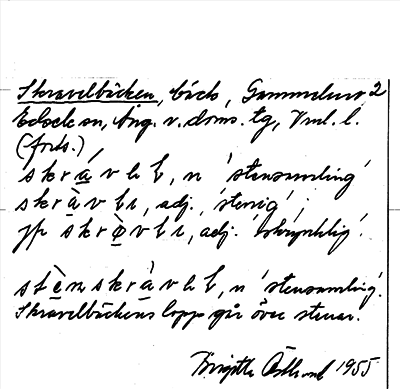 Skravelbäcken, bäck, 2
Edsele sn, Ång. v. doms. tg, Vnl. l.
(forts.)
skrávlḷ, n 'stensamling'
skràvlı, adj. 'stenig'
jfr skrøvlı, adj. 'skrynklig'.
stènskràvlḷ, n 'stensamling'.
Skravelbäckens lopp går över stenar.
Birgitta 1955